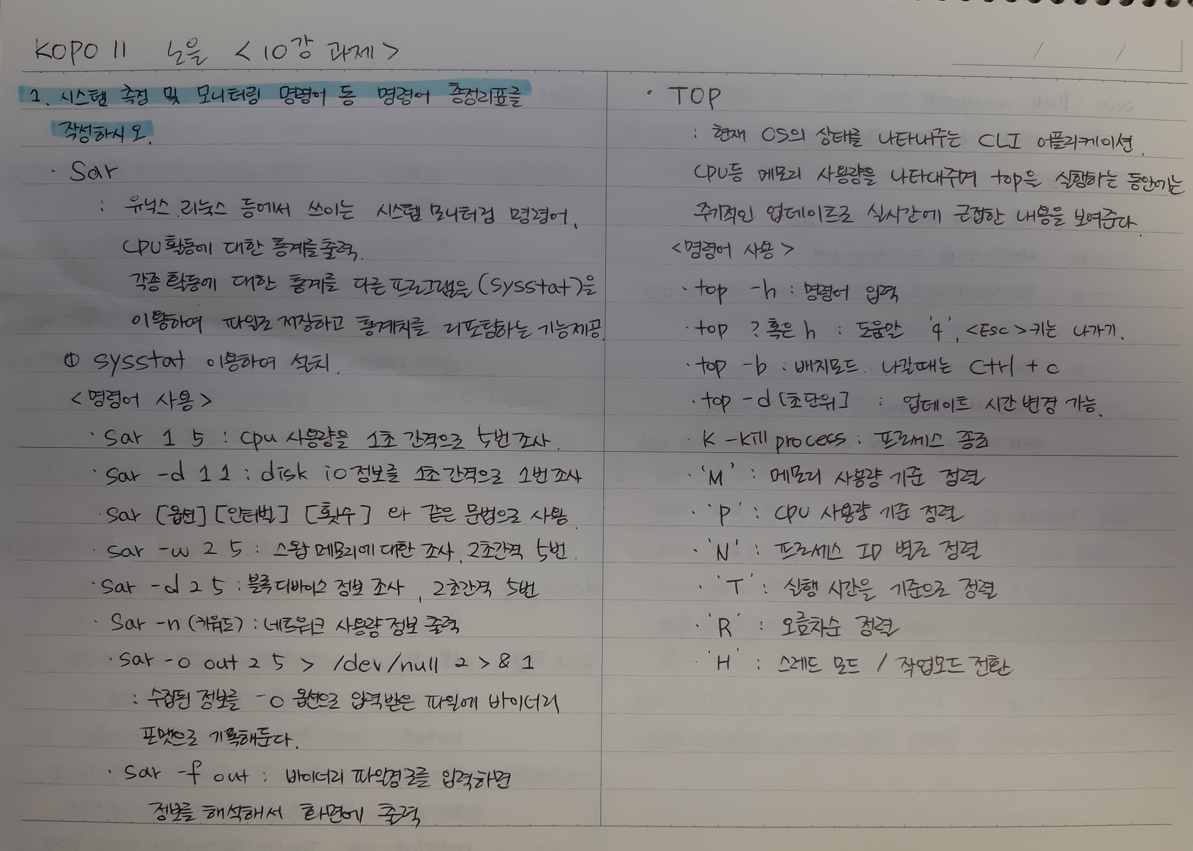 KOPO 11 노을 <10강 과제>
1. 시스템 측정 및 모니터링 명령어 등 명령어 총정리표를
작성하시오.
· Sar
: 유닉스, 리눅스 등에서 쓰이는 시스템 모니터링 명령어.
CPU 활동에 대한 통계를 출력.
각종 활동에 대한 통계를 다른 프로그램을 (sysstat)을
이용하여 파일로 저장하고 통계치를 리포팅하는 기능제공.
① sysstat 이용하여 설치.
<명령어 사용>
· sar 1 5 : cpu 사용량을 1초 간격으로 5번 조사.
· sar -d 1 1 : disk io 정보를 1초 간격으로 1번 조사
· sar [옵션] [인터벌] [횟수] 와 같은 문법으로 사용.
· sar -w 2 5 : 스왑 메모리에 대한 조사, 2초간격 5번.
· sar -d 2 5 : 블록 디바이스 정보 조사, 2초간격 5번
· Sar -n (키워드) : 네트워크 사용량 정보 출력
· sar -o out 2 5 > /dev/null 2 > & 1
: 수집된 정보를 -o 옵션으로 입력받은 파일에 바이너리
포맷으로 기록해둔다.
· sar -f out : 바이너리 파일경로를 입력하면
정보를 해석해서 화면에 출력
· TOP
: 현재 OS의 상태를 나타내주는 CLI 어플리케이션.
CPU등 메모리 사용량을 나타내주며 top을 실행하는 동안에는
주기적인 업데이트로 실시간에 근접한 내용을 보여준다.
<명령어 사용>
· top -h : 명령어 입력
· top ? 혹은 h : 도움말 'q', <Esc>키는 나가기.
· top -b : 배치모드. 나갈때는 Ctrl + c
· top -d [초단위] : 업데이트 시간 변경 가능.
· K - kill process : 프로세스 종료
· 'M' : 메모리 사용량 기준 정렬
· 'P' : CPU 사용량 기준 정렬
· 'N' : 프로세스 ID 별로 정렬
· 'T' : 실행 시간을 기준으로 정렬
· 'R' : 오름차순 정렬
· 'H' : 스레드 모드 / 작업모드 전환